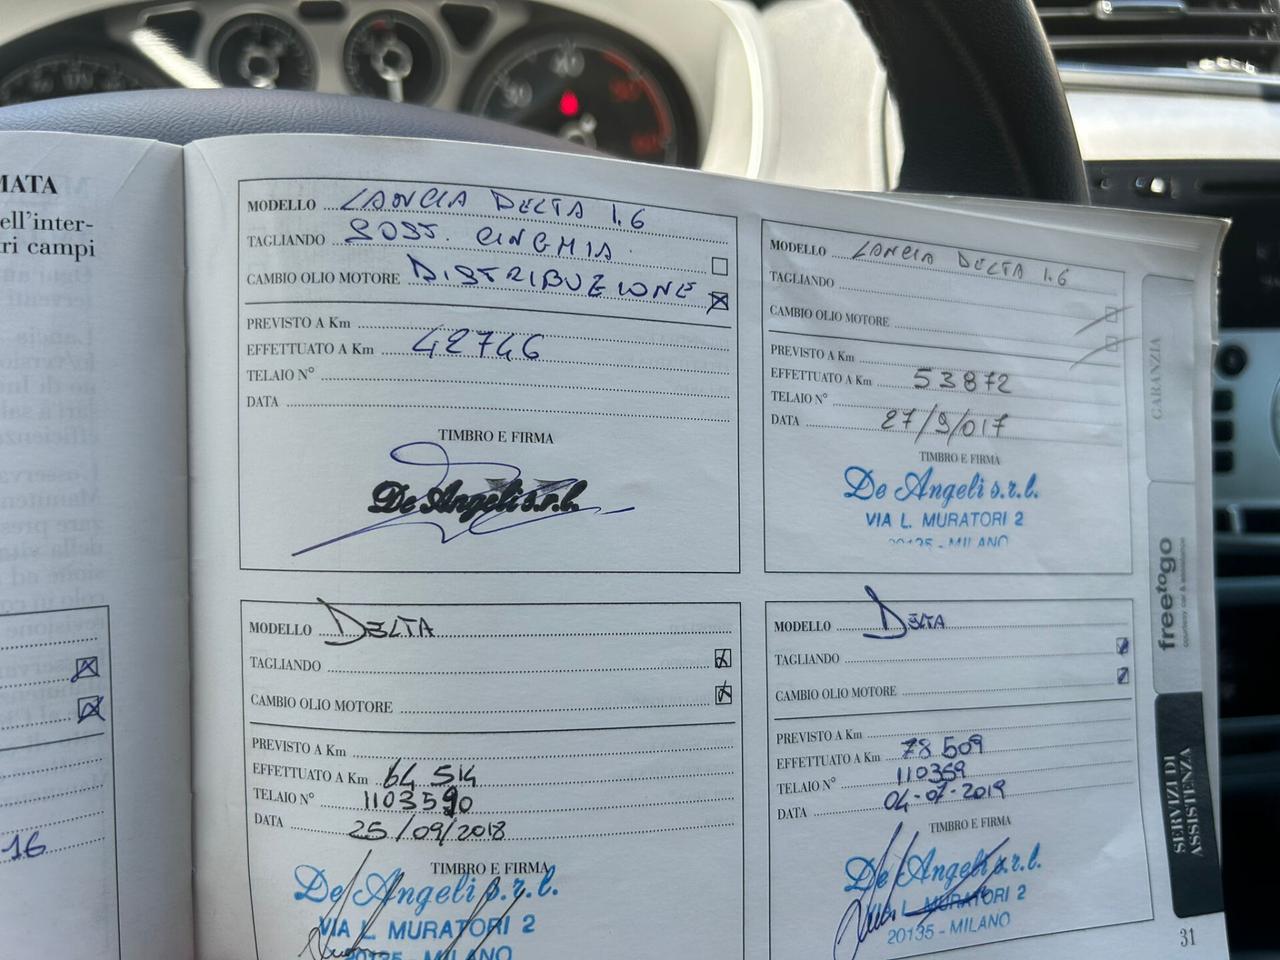 MATA
ell'inter-
tri campi
16
MODELLO LANCIA DELTA 1.6
TAGLIANDO SOST. CINGHIA
CAMBIO OLIO MOTORE DISTRIBUZIONE
PREVISTO A Km
EFFETTUATO A Km 42746
TELAIO N°
DATA
TIMBRO E FIRMA
De Angeli s.r.l.
MODELLO LANCIA DELTA 1.6
TAGLIANDO
CAMBIO OLIO MOTORE
PREVISTO A Km
EFFETTUATO A Km 53872
TELAIO N°
DATA 27/9/017
TIMBRO E FIRMA
De Angeli s.r.l.
VIA L. MURATORI 2
20135 - MILANO
MODELLO DELTA
TAGLIANDO
CAMBIO OLIO MOTORE
PREVISTO A Km
EFFETTUATO A Km 64 514
TELAIO N° 1103590
DATA 25/09/2018
TIMBRO E FIRMA
De Angeli s.r.l.
VIA L. MURATORI 2
20135 - MILANO
MODELLO DELTA
TAGLIANDO
CAMBIO OLIO MOTORE
PREVISTO A Km
EFFETTUATO A Km 78 509
TELAIO N° 110359
DATA 04-07-2019
TIMBRO E FIRMA
De Angeli s.r.l.
VIA L. MURATORI 2
20135 - MILANO
GARANZIA
freetogo
courtesy car & assistance
SERVIZI DI
ASSISTENZA
31